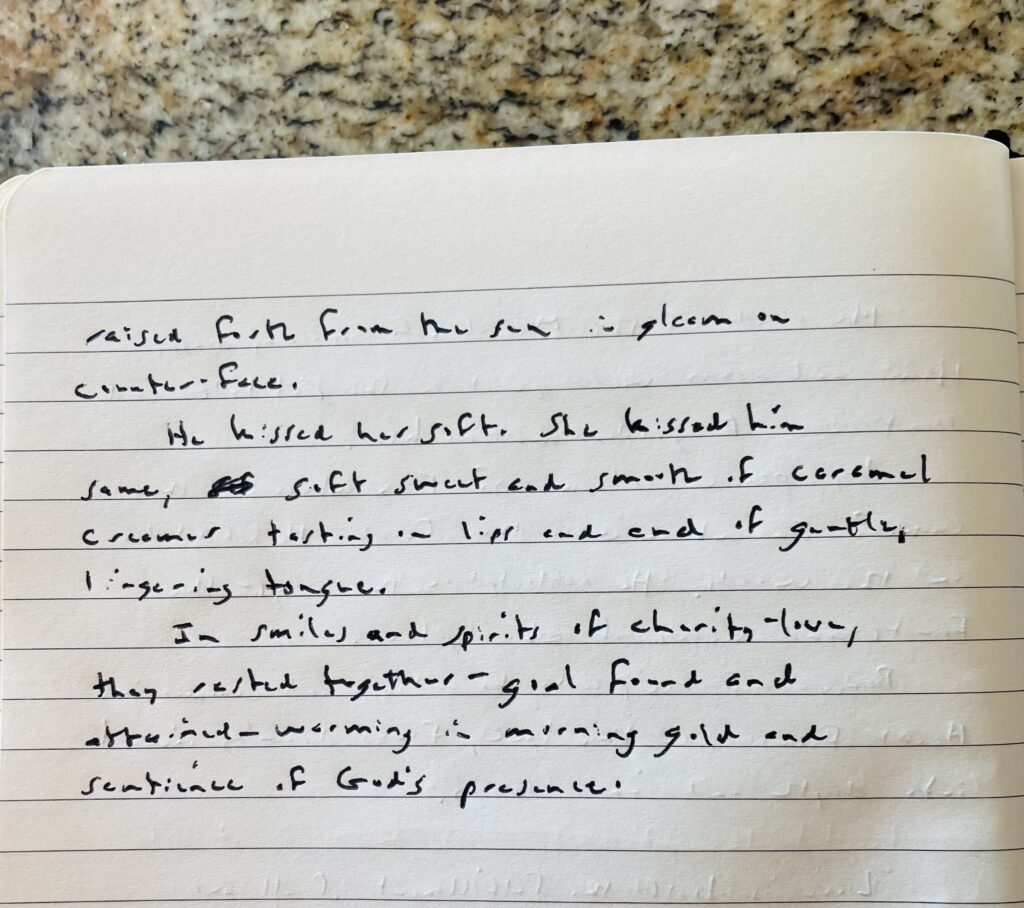 raised forth from the sun in gleam on
counter-face.
He kissed her soft. She kissed him
same, soft sweet and smooth of caramel
creamer tasting on lips and end of gentle,
lingering tongue.
In smiles and spirits of charity-love,
they rested together - goal found and
attained - warming in morning gold and
sentience of God's presence.